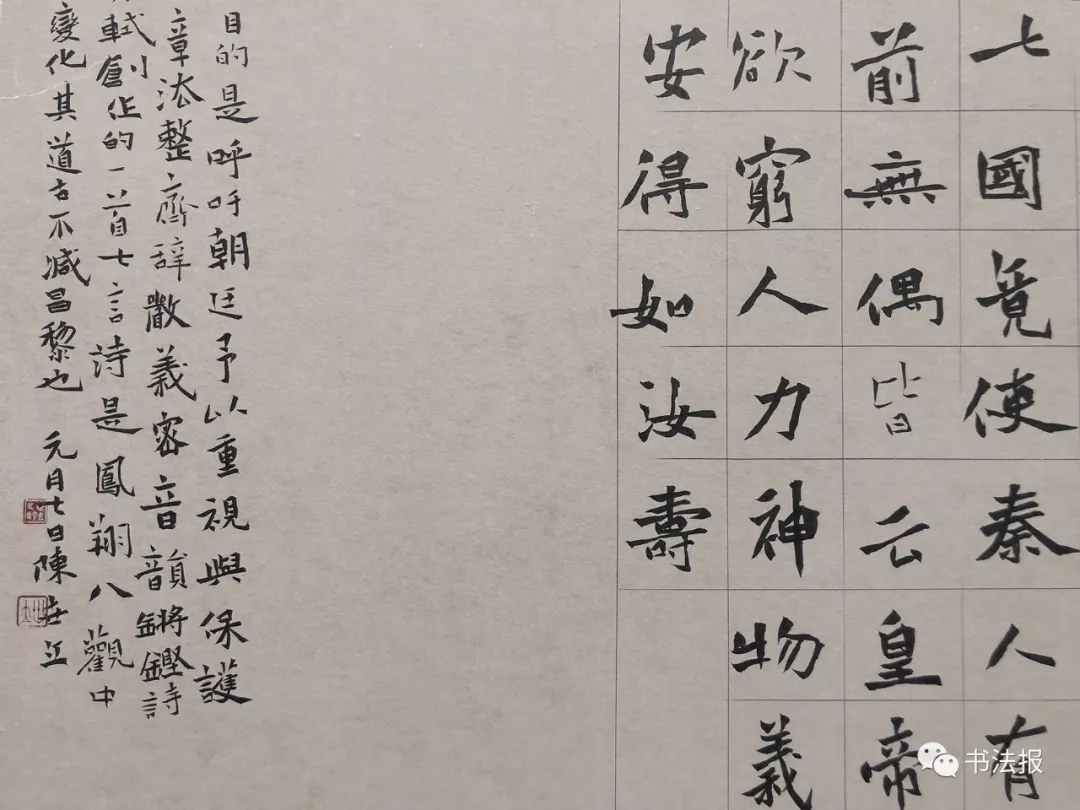 七國竟使秦人有
前無偶皆云皇帝
欲窮人力神物義
安得如汝壽
目的是呼吁朝廷予以重視與保護
章法整齊辭嚴義密音韻鏘鏗詩
軾創作的一首七言詩是鳳翔八觀中
變化其道古不減昌黎也 元月七日陳世江
书法报